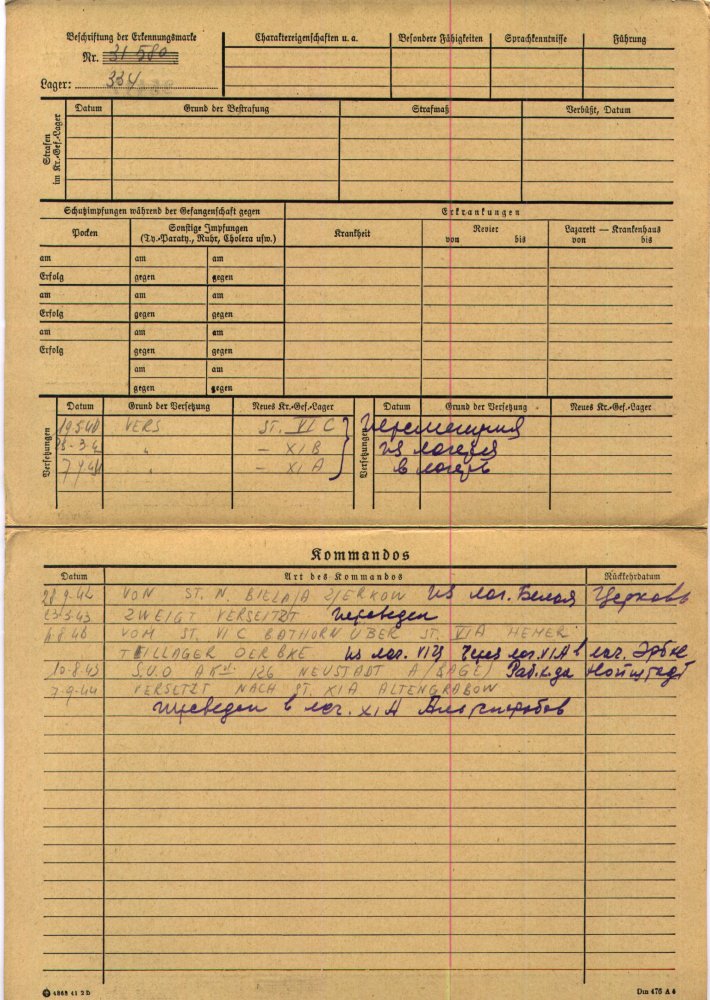 Beschriftung der Erkennungsmarke
Nr. 31 580
Lager: 334
Charaktereigenschaften u. a.
Besondere Fähigkeiten
Sprachkenntnisse
Führung
Strafen im Kr.-Gef.-Lager
Datum
Grund der Bestrafung
Strafmaß
Verbüßt, Datum
Schutzimpfungen während der Gefangenschaft gegen
Erkrankungen
Pocken
Sonstige Impfungen
(Ty.-Paraty., Ruhr, Cholera usw.)
Krankheit
Revier
von bis
Lazarett — Krankenhaus
von bis
am am am
Erfolg gegen gegen
am am am
Erfolg gegen gegen
am am am
Erfolg gegen gegen
am am
gegen gegen
Versetzungen
Datum Grund der Versetzung Neues Kr.-Gef.-Lager
VERS ST. VI C
" — XI B
" — XI A
Versetzungen
Datum Grund der Versetzung Neues Kr.-Gef.-Lager
из лагеря
в лагерь
Kommandos
Datum Art des Kommandos Rückkehrdatum
VON ST. N. BIELAJA ZERKOW из лаг. Белая Церковь
23-3-43 ZWEIGT VERSETZT переведен
VOM ST. VI C BATHORN ÜBER ST. VI A HEMER
TEILLAGER OERBKE из лаг. VI Ц через лаг. VI А в лаг. Эрбке
10-8-43 126 NEUSTADT A/BAGE) Раб. к-да Нойштадт
7-9-44 VERSETZT NACH ST. XI A ALTENGRABOW
переведен в лаг. XI А Альтенграбов
4868 41 2 D
Dm 476 A 4